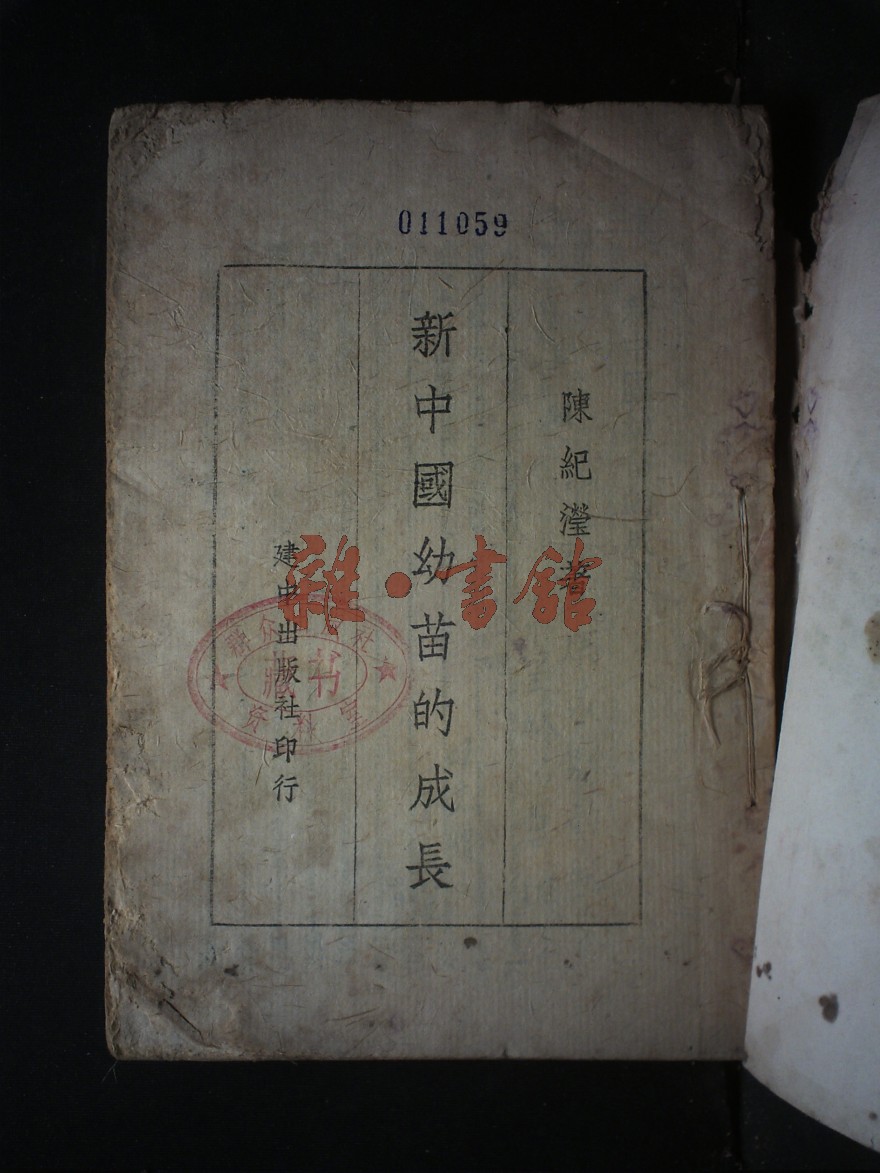 011059
陳紀瀅著
新中國幼苗的成長
建中出版社印行
雜·書舘
藏书
資料室